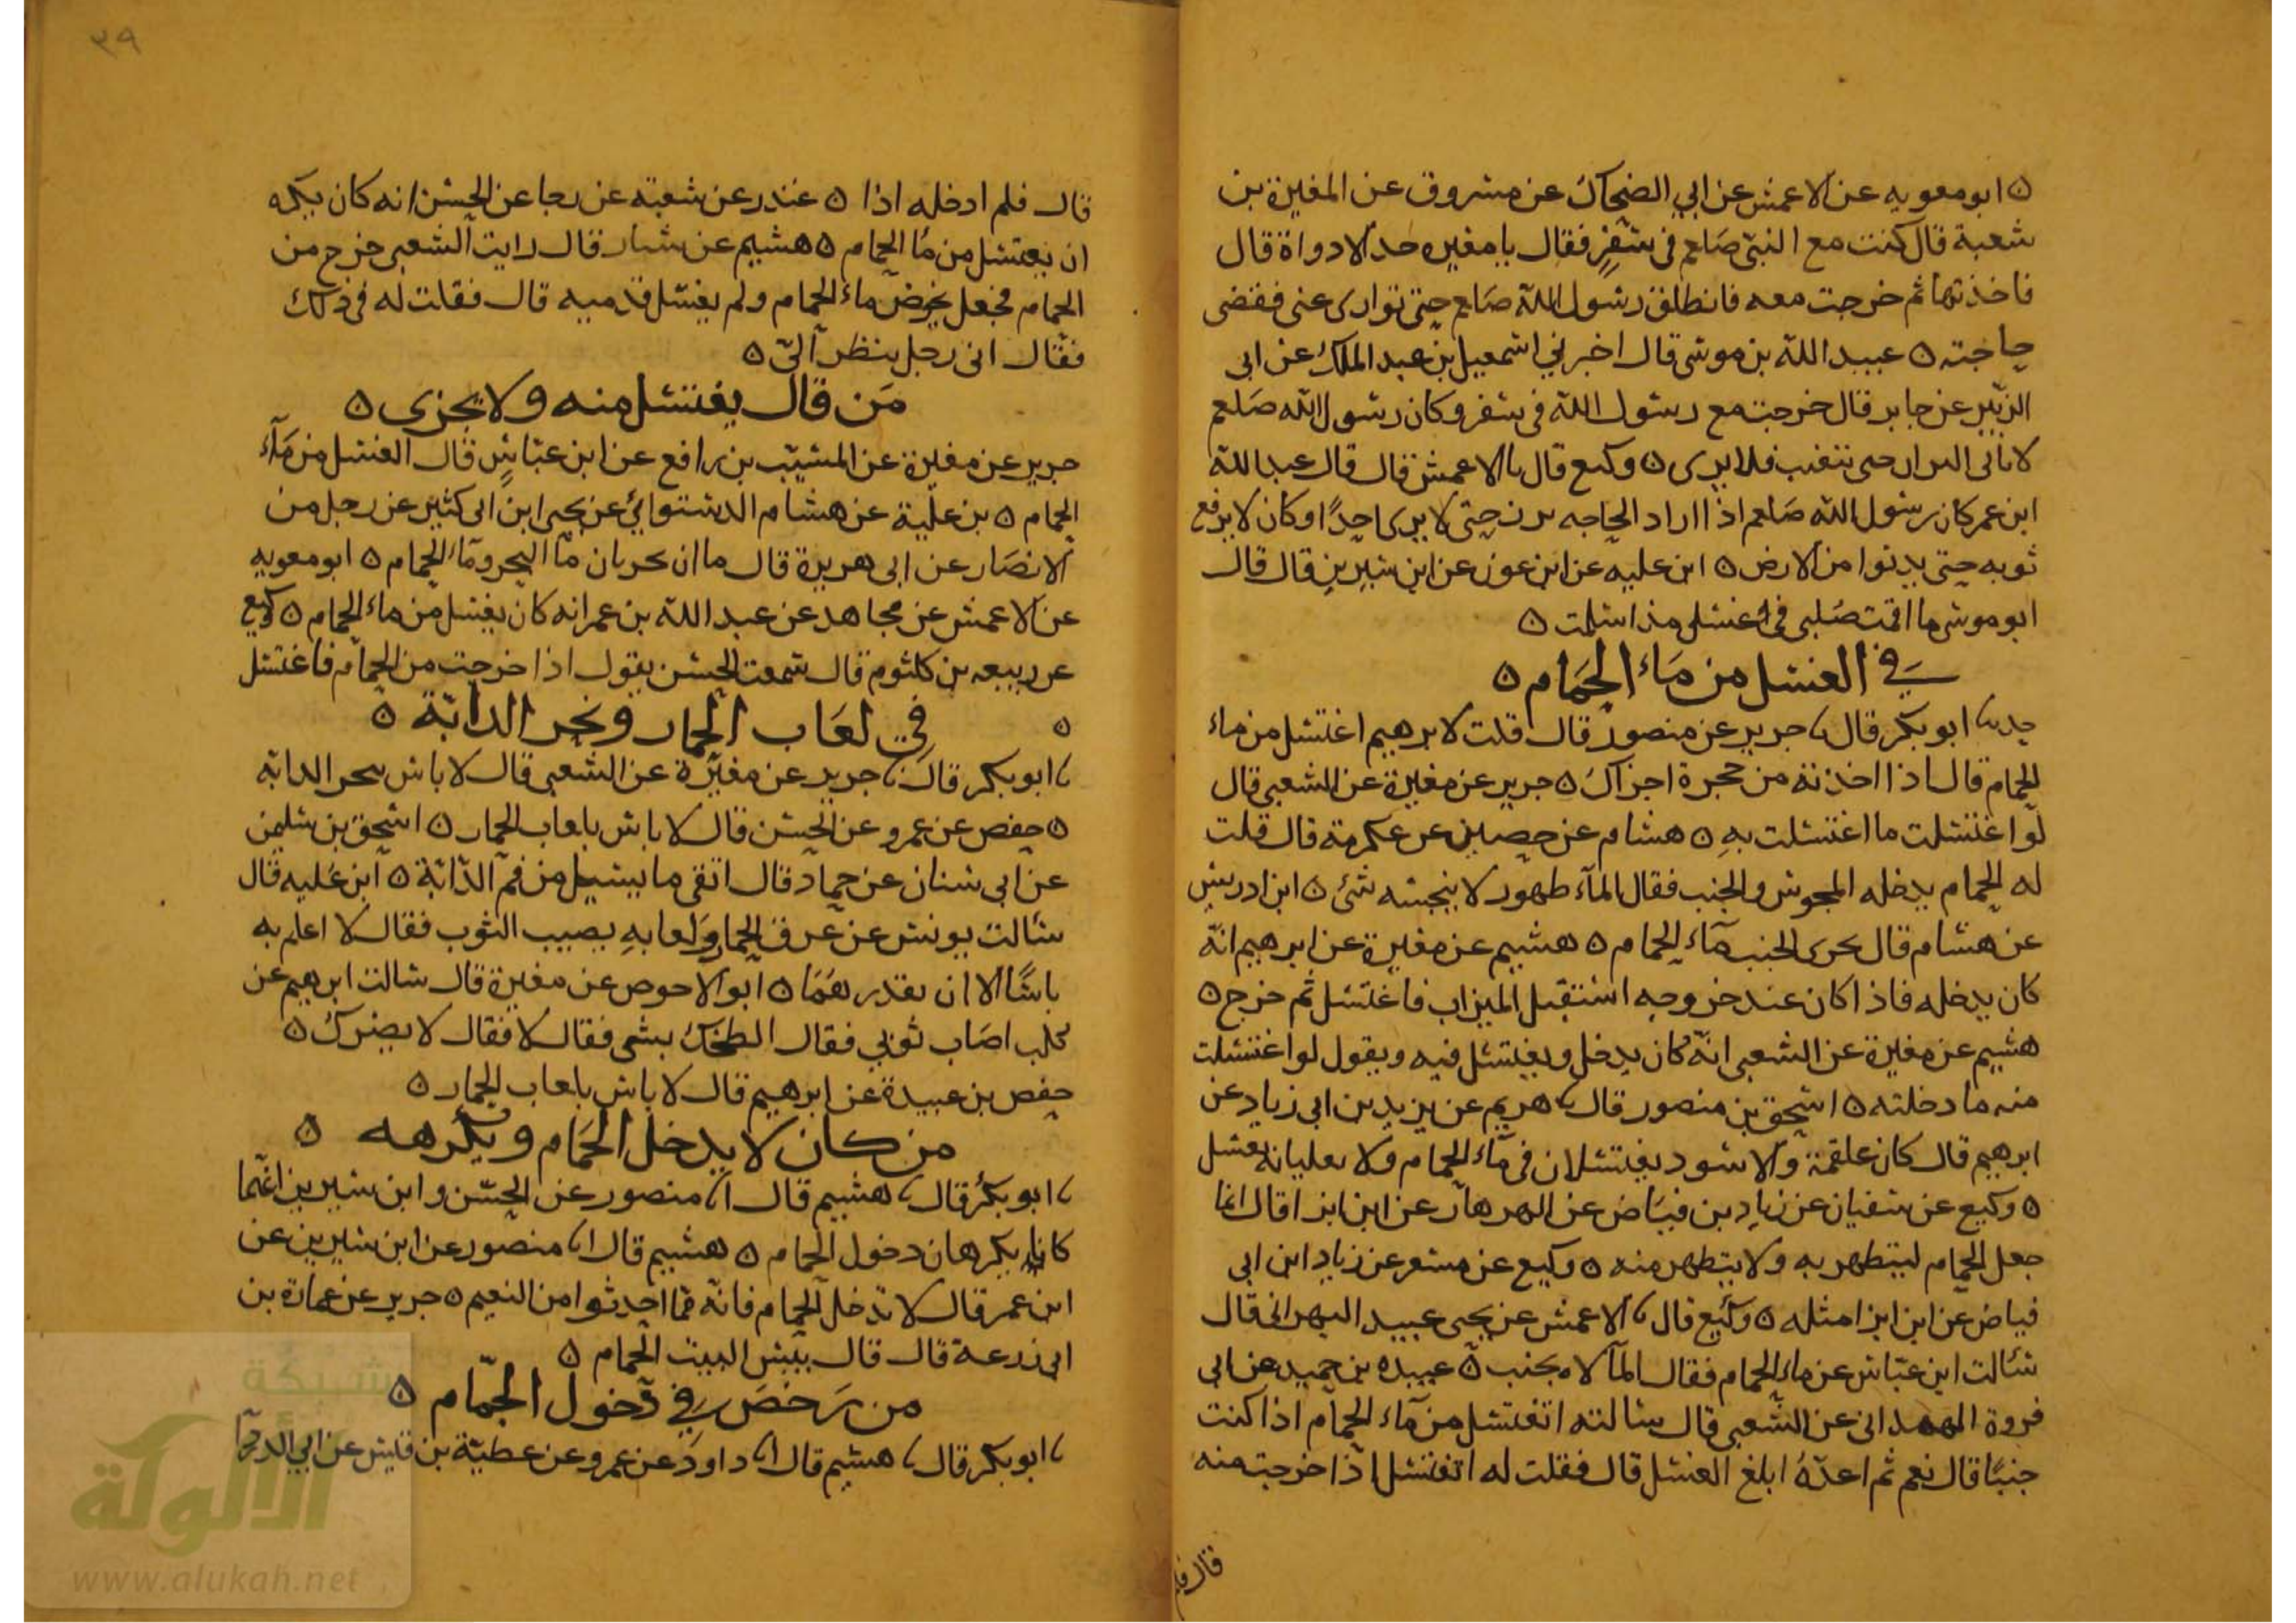 ه ابو معويه عن الاعمش عن ابي الضحاك عن مسروق عن المغيرة بن
شعبة قال كنت مع النبي صلعم في سفر فقال يا مغيره خذ الادواة قال
فاخذتها ثم خرجت معه فانطلق رسول الله صلعم حتى توارى عني فقضى
حاجته ه عبيد الله بن موسى قال اخبرني اسمعيل بن عبد الملك عن ابي
الزبير عن جابر قال خرجت مع رسول الله في سفر وكان رسول الله صلعم
لا ياتي البراز حتى يتغيب فلا يرى ه وكيع قال نا الاعمش قال قال عبد الله
ابن عمر كان رسول الله صلعم اذا اراد الحاجه حتى لا يرى احدا وكان لا يرفع
ثوبه حتى يدنوا من الارض ه ابن عليه عن ابن عون عن ابن سيرين قال قال
ابو موسى ما اقمت صلبي في غسلي مذ اسلمت ه
في الغسل من ماء الحمام ه
حدثنا ابو بكر قال نا جرير عن منصور قال قلت لابرهيم اغتسل من ماء
الحمام قال اذا اخذته من حجرة اجزاك ه جرير عن مغيرة عن الشعبي قال
لو اغتسلت ما اغتسلت به ه هشام عن حصين عن عكرمة قال قلت
له الحمام يدخله المجوس والجنب فقال الماء طهور لا ينجسه شئ ه ابن ادريس
عن هشام قال يجزى الجنب ماء الحمام ه هشيم عن مغيرة عن ابرهيم انه
كان يدخله فاذا كان عند خروجه استقبل الميزاب فاغتسل ثم خرج ه
هشيم عن مغيرة عن الشعبي انه كان يدخل ويغتسل فيه ويقول لو اغتسلت
منه ما دخلته ه اسحق بن منصور قال نا هريم عن يزيد بن ابي زياد عن
ابرهيم قال كان علقمة والاسود يغتسلان في ماء الحمام ولا
ه وكيع عن سفيان عن زياد بن فياض عن الهزهاز عن ابن ابزا قال انما
جعل الحمام ليتطهر به ولا يتطهر منه ه وكيع عن مسعر عن زياد ابن ابي
فياض عن ابن ابزا مثله ه وكيع قال نا الاعمش عن يحيى عبيد البهراني قال
سالت ابن عباس عن ماء الحمام فقال الماء لا يجنب ه عبيده بن حميد عن ابي
فروة الهمداني عن الشعبي قال سالته اتغتسل من ماء الحمام اذا كنت
جنبا قال نعم ثم اعده ابلغ الغسل قال فقلت له اتغتسل اذا خرجت منه
قال فلم
٣٩
قال فلم ادخله اذا ه غندر عن شعبة عن رجا عن الحسن انه كان يكره
ان يغتسل من ما الحمام ه هشيم عن سيار قال رايت الشعبي خرج من
الحمام فجعل يخوض ماء الحمام ولم يغسل قدميه قال فقلت له في ذلك
فقال اني رجل ينظر الي ه
من قال يغتسل منه ولا يجزى ه
جرير عن مغيرة عن المسيب بن رافع عن ابن عباس قال الغسل من ماء
الحمام ه بن علية عن هشام الدستوائي عن يحيى ابن ابي كثير عن رجل من
الانصار عن ابي هريرة قال ماان يجزيان ما البحر وماء الحمام ه ابو معويه
عن الاعمش عن مجاهد عن عبد الله بن عمر انه كان يغتسل من ماء الحمام ه وكيع
عن ربيعه بن كلثوم قال سمعت الحسن يقول اذا خرجت من الحمام فاغتسل
ه في لعاب الحمار ونخر الدابة ه
نا ابو بكر قال نا جرير عن مغيرة عن الشعبي قال لا باس بنخر الدابه
ه حفص عن عمرو عن الحسن قال لا باس بلعاب الحمار ه اسحق بن سليمن
عن ابي سنان عن حماد قال اتقى ما يسيل من فم الدابة ه ابن عليه قال
سالت يونس عن عرق الحمار ولعابه يصيب الثوب فقال لا اعلم به
باسا الا ان يقدرهما ه ابو الاحوص عن مغيرة قال سالت ابرهيم عن
كلب اصاب ثوبي فقال الطخك بشى فقال لا فقال لا يضرك ه
حفص بن عبيدة عن ابرهيم قال لا باس بلعاب الحمار ه
من كان لا يدخل الحمام ويكرهه ه
نا ابو بكر قال نا هشيم قال انا منصور عن الحسن وابن سيرين انهما
كانا يكرهان دخول الحمام ه هشيم قال انا منصور عن ابن سيرين عن
ابن عمر قال لا تدخل الحمام فانه مما احدثوا من النعيم ه جرير عن عمارة بن
ابي زرعة قال قال بيس البيت الحمام ه
من رخص في دخول الحمام ه
نا ابو بكر قال نا هشيم قال انا داود عن عمرو عن عطية بن قيس عن ابي الدردا
شبكة
الألوكة
www.alukah.net